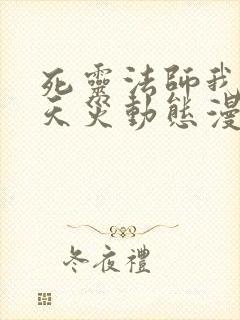 死靈法師我
天災動態漫
冬夜禮